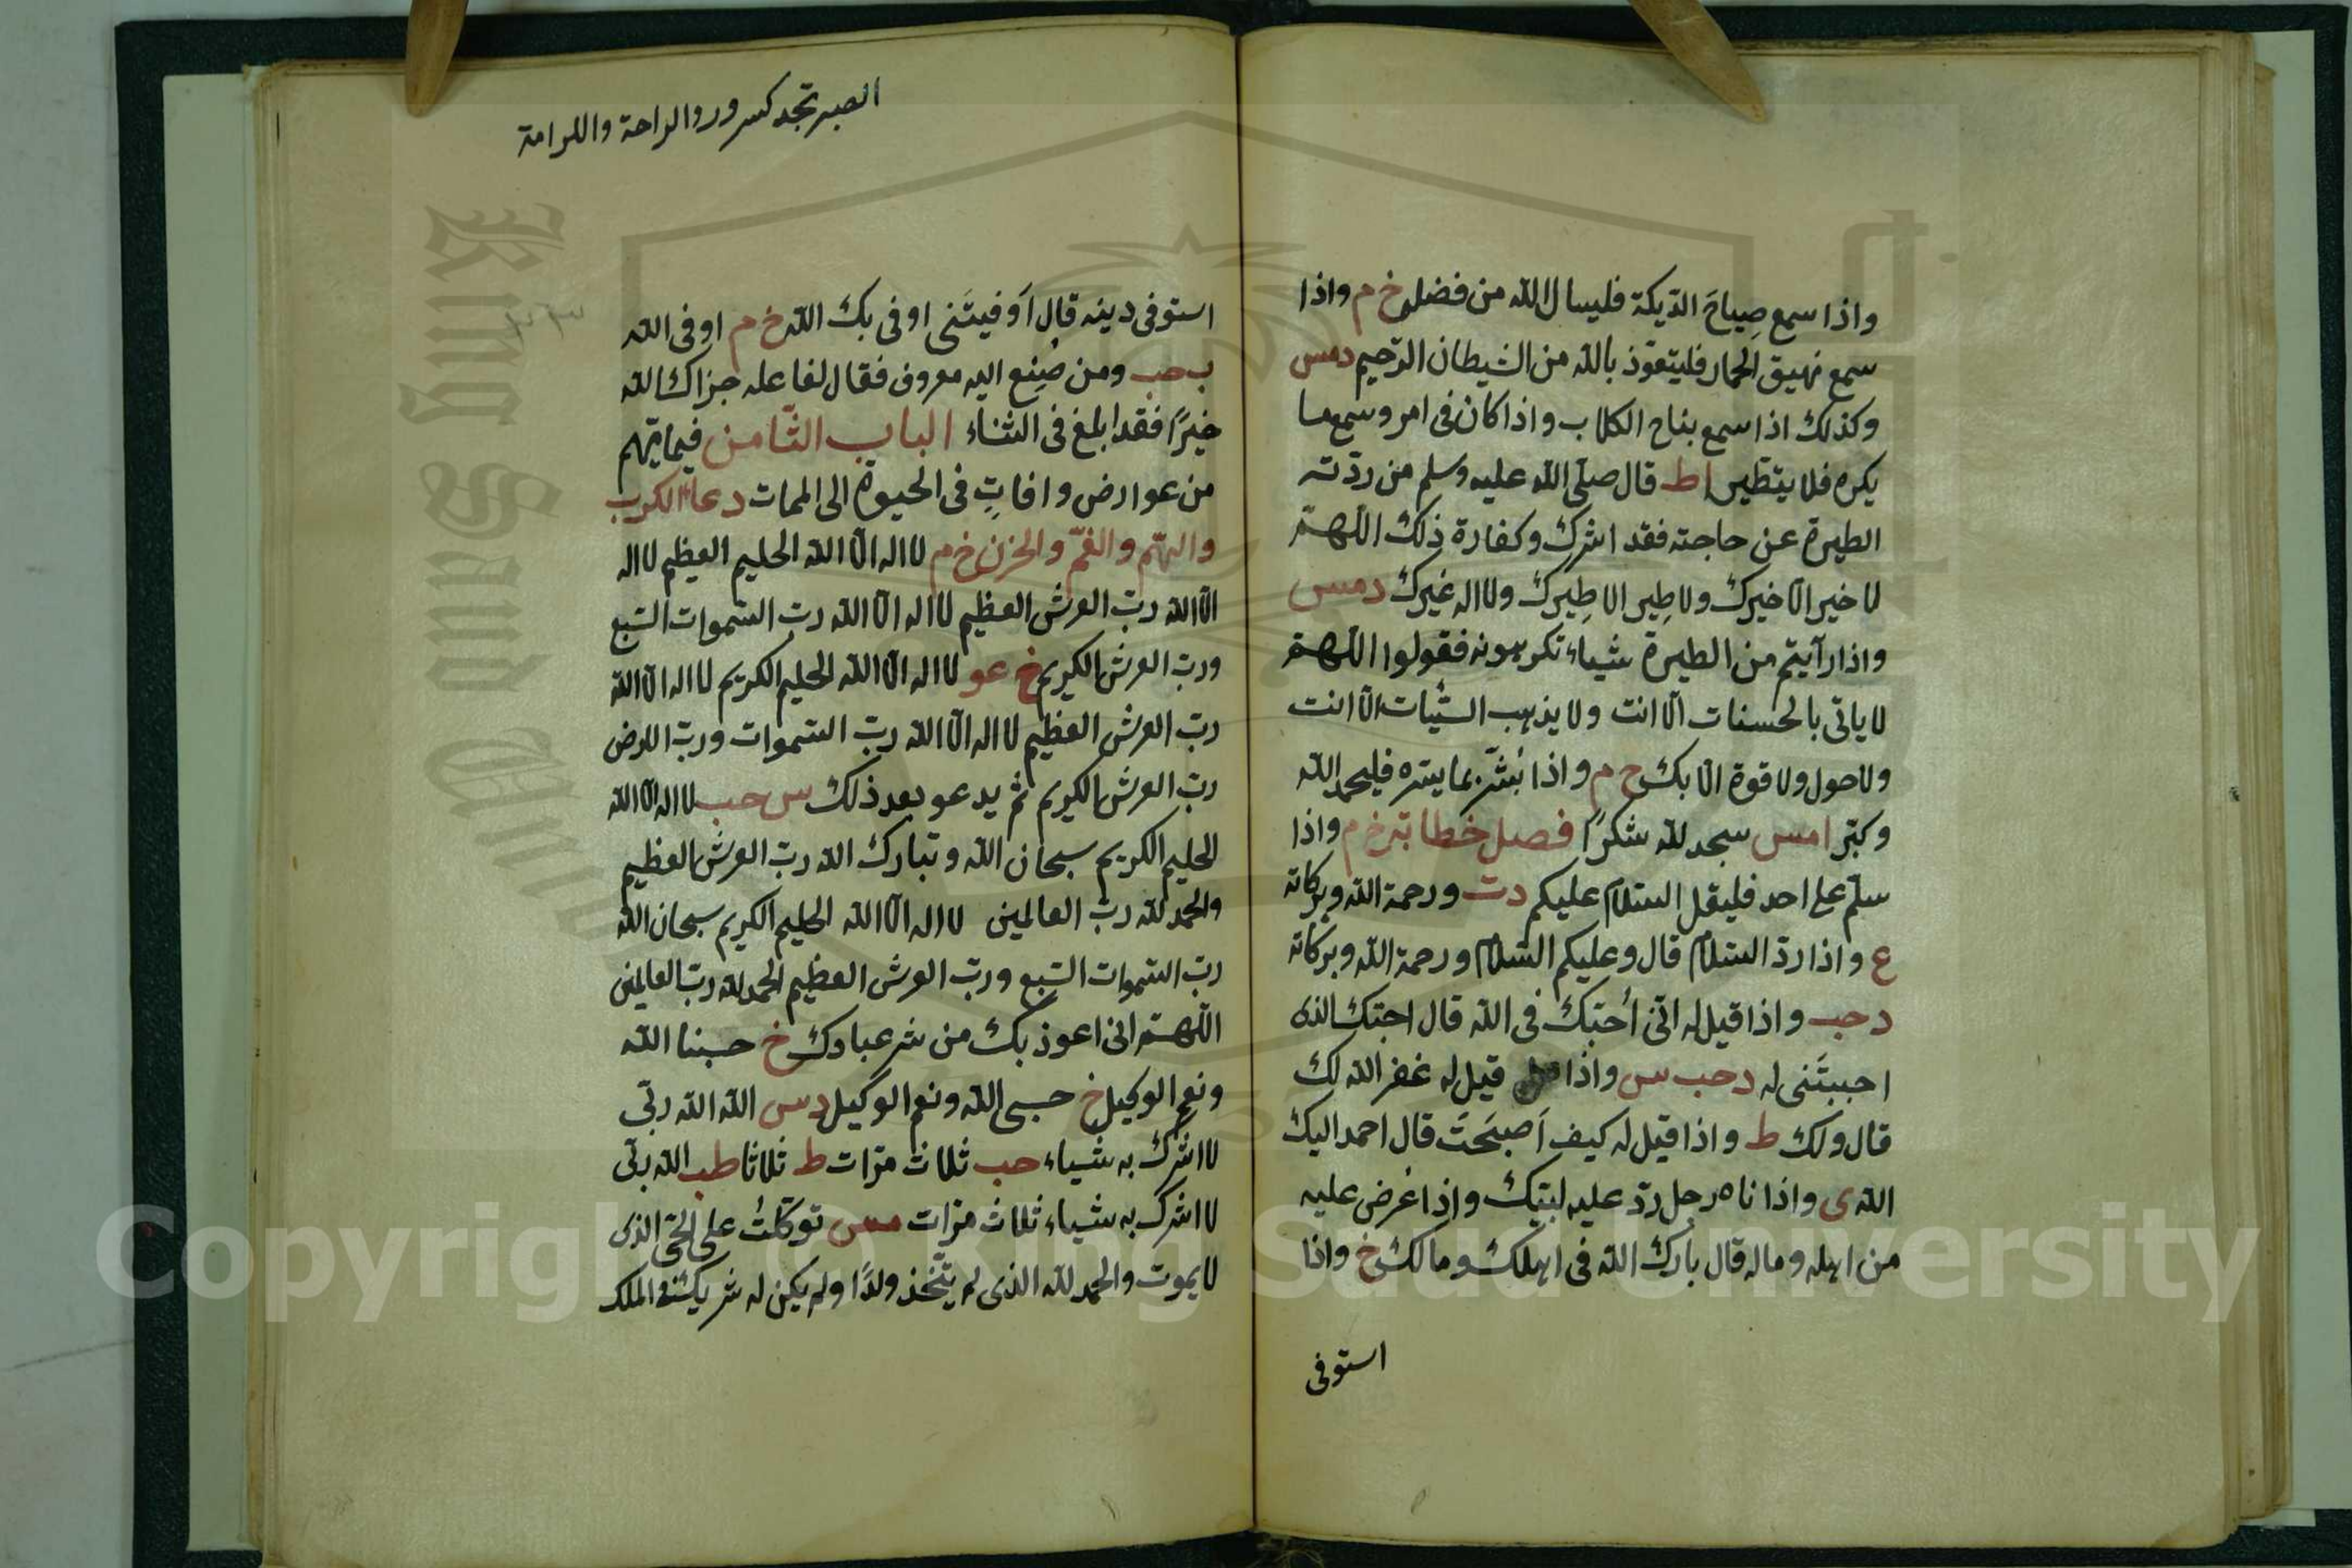 واذا سمع صِياحَ الدّيكة فليسال الله من فضله خ م واذا
سمع نهيق الحمار فليتعوّذ بالله من الشيطان الرّجيم دمس
وكذلك اذا سمع بناح الكلاب واذا كان فى امر وسمع ما
يكره فلا يتطيّر اط قال صلّى الله عليه وسلم من ردّته
الطيرة عن حاجته فقد اشرك وكفارة ذلك اللّهمّ
لا خير الّا خيرك ولا طِير الا طِيرك ولا اله غيرك دمس
واذا رآيتم من الطيرة شياء تكرهونه فقولوا اللّهمّ
لا ياتى بالحسنات الّا انت ولا يذهب السّيّات الّا انت
ولا حول ولا قوة الّا بك خ م واذا بُشّر بما يسّره فليحمد الله
وكبّر امس سجد لله شكرًا فصل خطابة خ م واذا
سلّم على احد فليقل السّلام عليكم دت ورحمة الله وبركاته
ع واذا ردّ السّلام قال وعليكم السّلام ورحمة الله وبركاته
د حب واذا قيل له انّى أحبّك فى الله قال احبّك الذى
احببتَنى له دحب س واذا قيل له غفر الله لك
قال ولك ط واذا قيل له كيف اَصبَحتَ قال احمد اليك
الله ى واذا ناه رجل ردّ عليه لبيّك واذا عُرض عليه
من اهله وماله قال بارك الله فى اهلك ومالك خ واذا
استوفى
الصبر تجد كسرور والراحة والكرامة
استوفى دينه قال اَوفيتَنى اوفى بك الله خ م اوفى الله
ب حب ومن صُنِع اليه معروف فقال لفاعله جزاك الله
خيرًا فقد ابلغ فى الثناء الباب الثّامن فيما يهّم
من عوارض وافاتٍ فى الحيوة الى الممات دعاء الكرب
والهّم والغمّ والحزن خ م لا اله الّا الله الحليم العظيم لا اله
الّا الله ربّ العرش العظيم لا اله الّا الله ربّ السّموات السّبع
وربّ العرش الكريم خ عو لا اله الّا الله الحليم الكريم لا اله الّا الله
ربّ العرش العظيم لا اله الّا الله ربّ السّموات وربّ الارض
ربّ العرش الكريم ثم يدعو بعد ذلك س حب لا اله الّا الله
الحليم الكريم سبحان الله وتبارك الله ربّ العرش العظيم
والحمد لله ربّ العالمين لا اله الّا الله الحليم الكريم سبحان الله
ربّ السّموات السّبع وربّ العرش العظيم الحمد لله ربّ العالمين
اللّهمّ انى اعوذ بك من شر عبادك خ حسبنا الله
ونعم الوكيل خ حسبى الله ونعم الوكيل دس الله الله ربّى
لا اشرك به شياء حب ثلاث مرّات ط ثلاثا طب الله ربّى
لا اشرك به شياء ثلاث مرّات مس توكّلتُ على الحىّ الذى
لا يموت والحمد لله الذى لم يتّخذ ولدًا ولم يكن له شريك فى الملك
Copyright © King Saud University